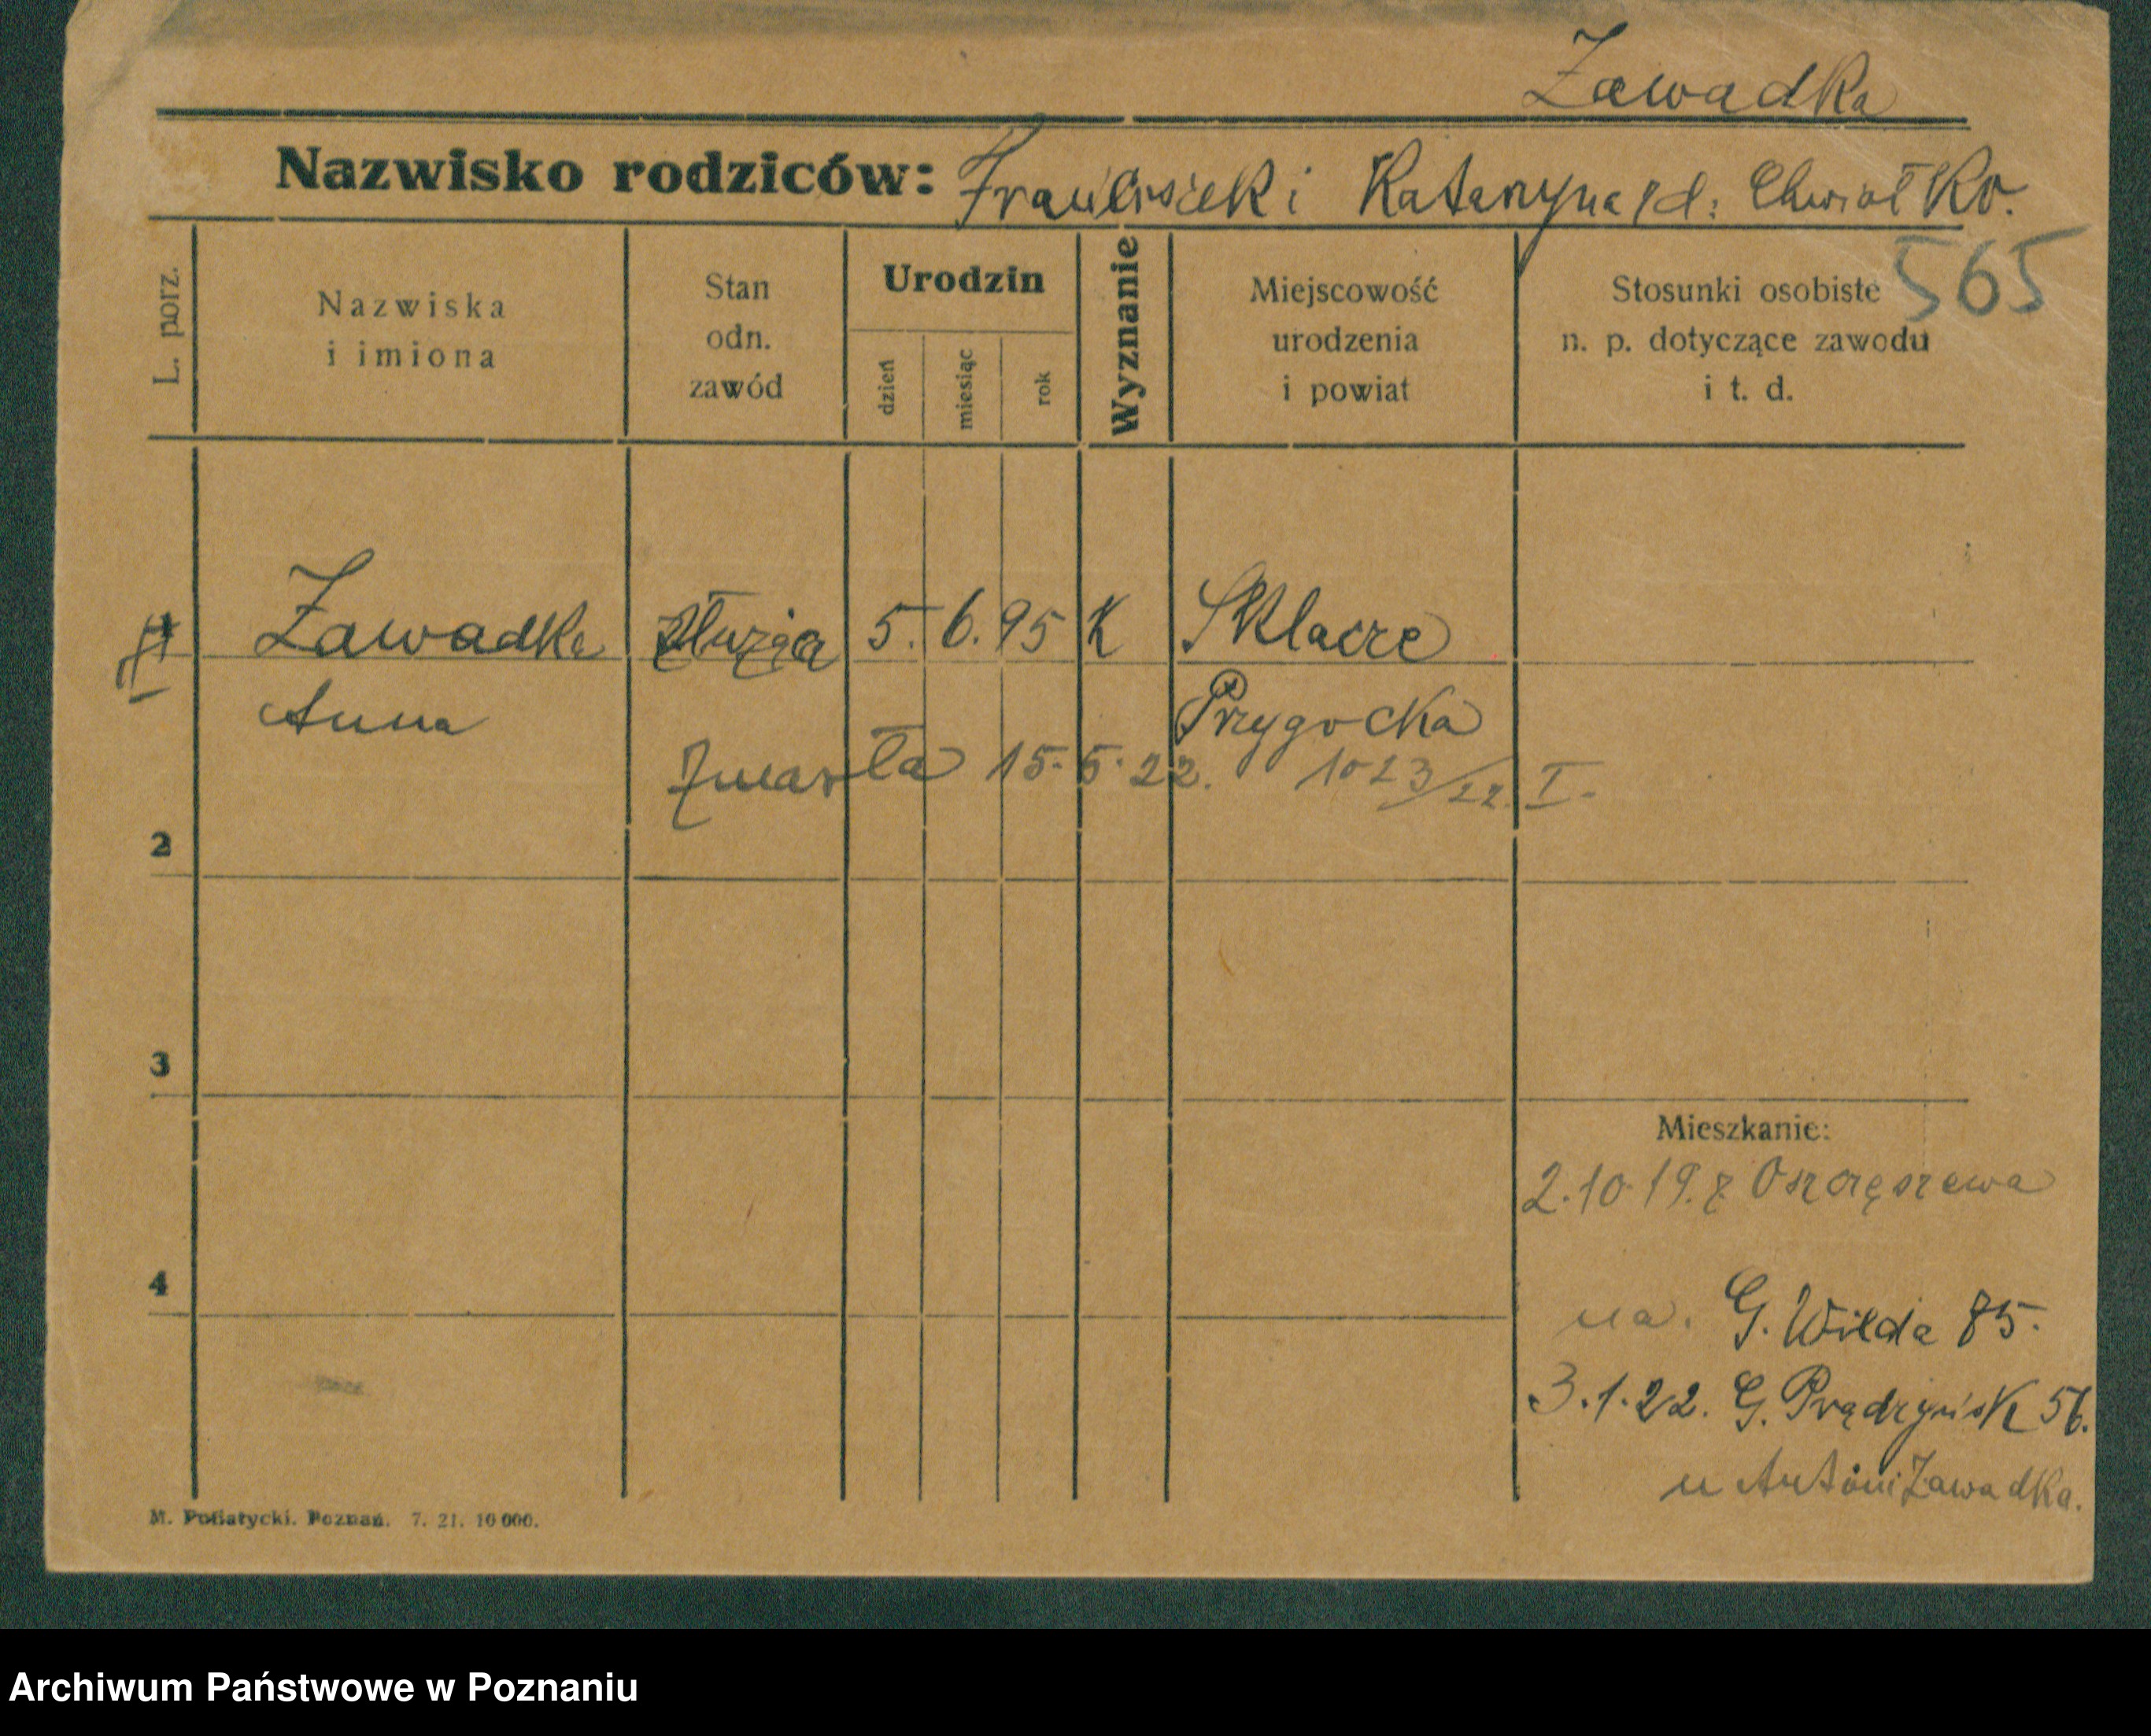 Zawadka
Nazwisko rodziców: Franciszek i Katarzyna rd: Chwiałko.
565
L. porz.
Nazwiska
i imiona
Stan
odn.
zawód
Urodzin
dzień
miesiąc
rok
Wyznanie
Miejscowość
urodzenia
i powiat
Stosunki osobiste
n. p. dotyczące zawodu
i t. d.
Zawadka służąca 5. 6. 95 K Sklacze
Anna Przygocka
Zmarła 15. 5. 22. 1023/22. I.
2
3
Mieszkanie:
2.10.19. z Oszczęszewa
4
na. G. Wilda 85.
3.1.22. G. Prądzyńsk 56.
u Antoni Zawadka.
M. Pofiatycki. Poznań. 7. 21. 10 000.
Archiwum Państwowe w Poznaniu